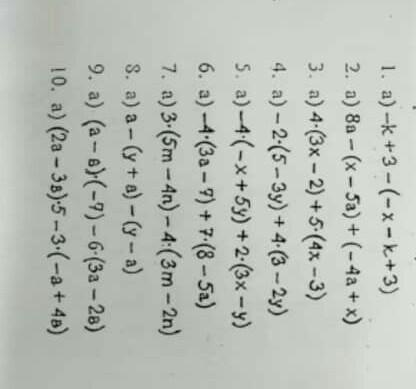 1. a) -k + 3 - (-x - k + 3)
2. a) 8a - (x - 5a) + (-4a + x)
3. a) 4·(3x - 2) + 5·(4x - 3)
4. a) -2·(5 - 3y) + 4·(3 - 2y)
5. a) -4·(-x + 5y) + 2·(3x - y)
6. a) -4·(3a - 7) + 7·(8 - 5a)
7. a) 3·(5m - 4n) - 4·(3m - 2n)
8. a) a - (y + a) - (y - a)
9. a) (a - в)·(-7) - 6·(3a - 2в)
10. a) (2a - 3в)·5 - 3·(-a + 4в)